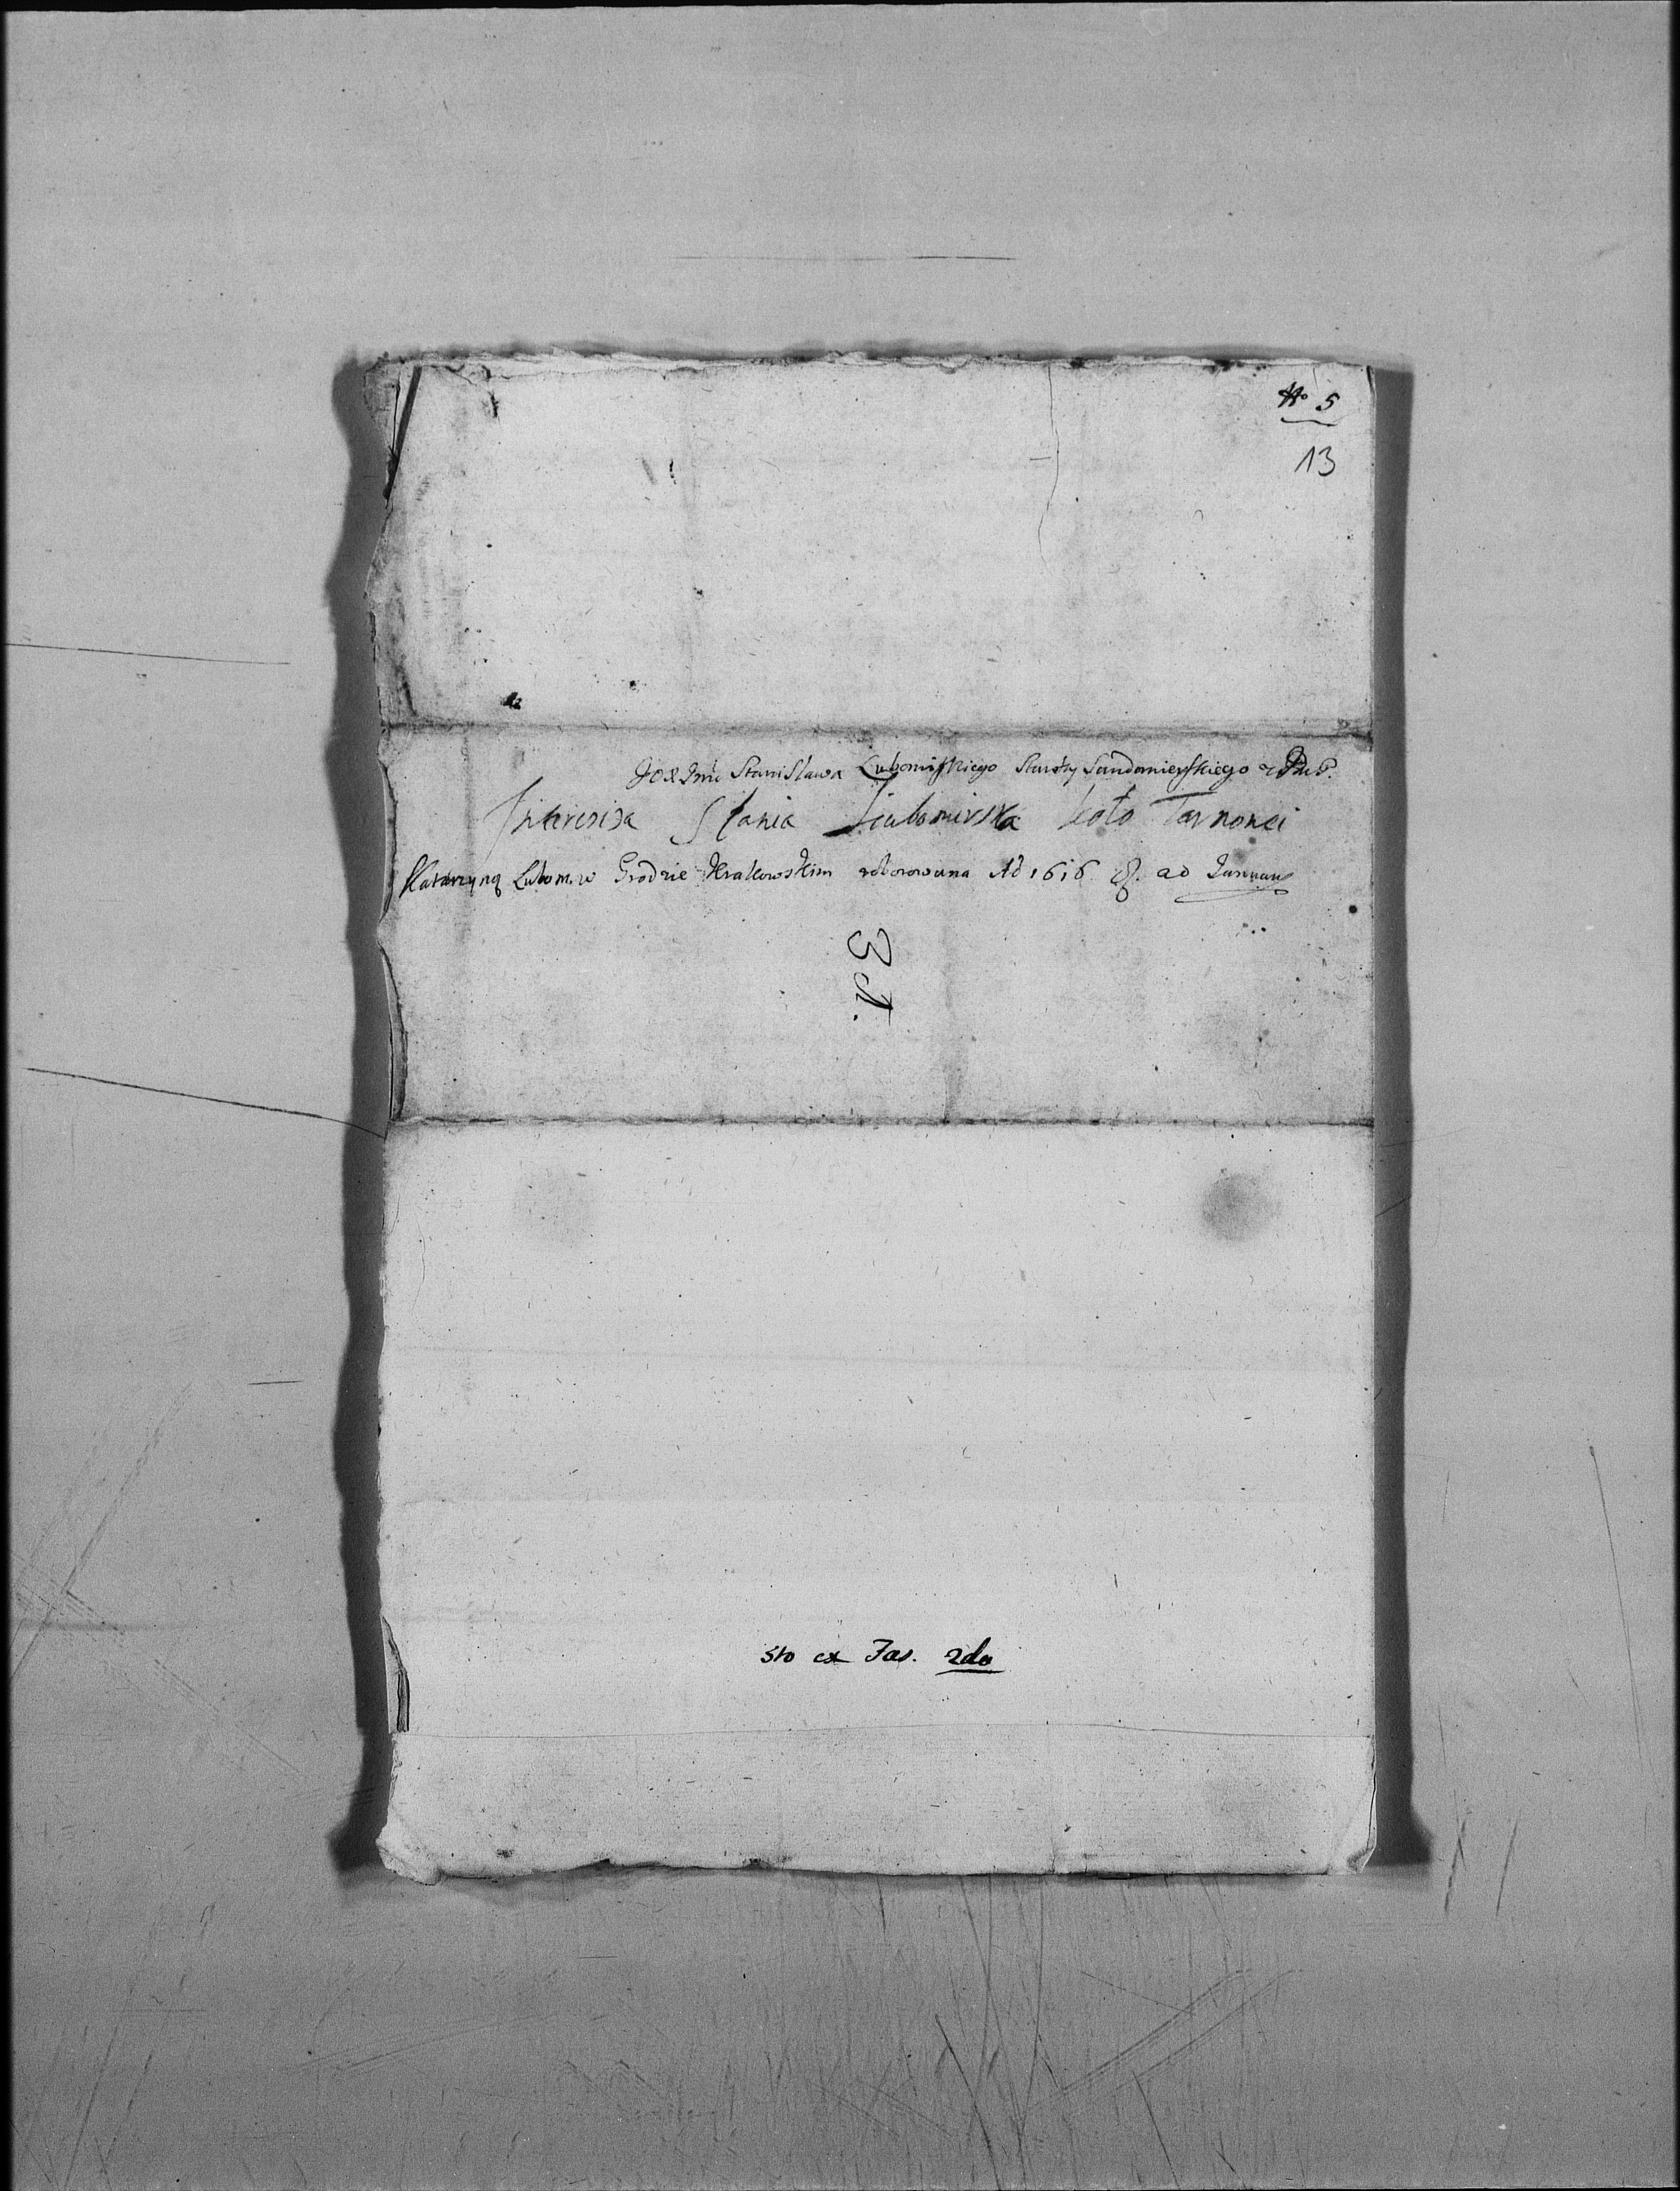 No 5
13
Stanisława Lubomirskiego Starosty Sandomierskiego z
Intercisa Stania Liubomirska koło Tarnowei
Katarzyną Lubom. w Grodzie Krakowskim roborowana Ao 1616 8. ad Januarij
3 A.
5to ex Fas. 2do